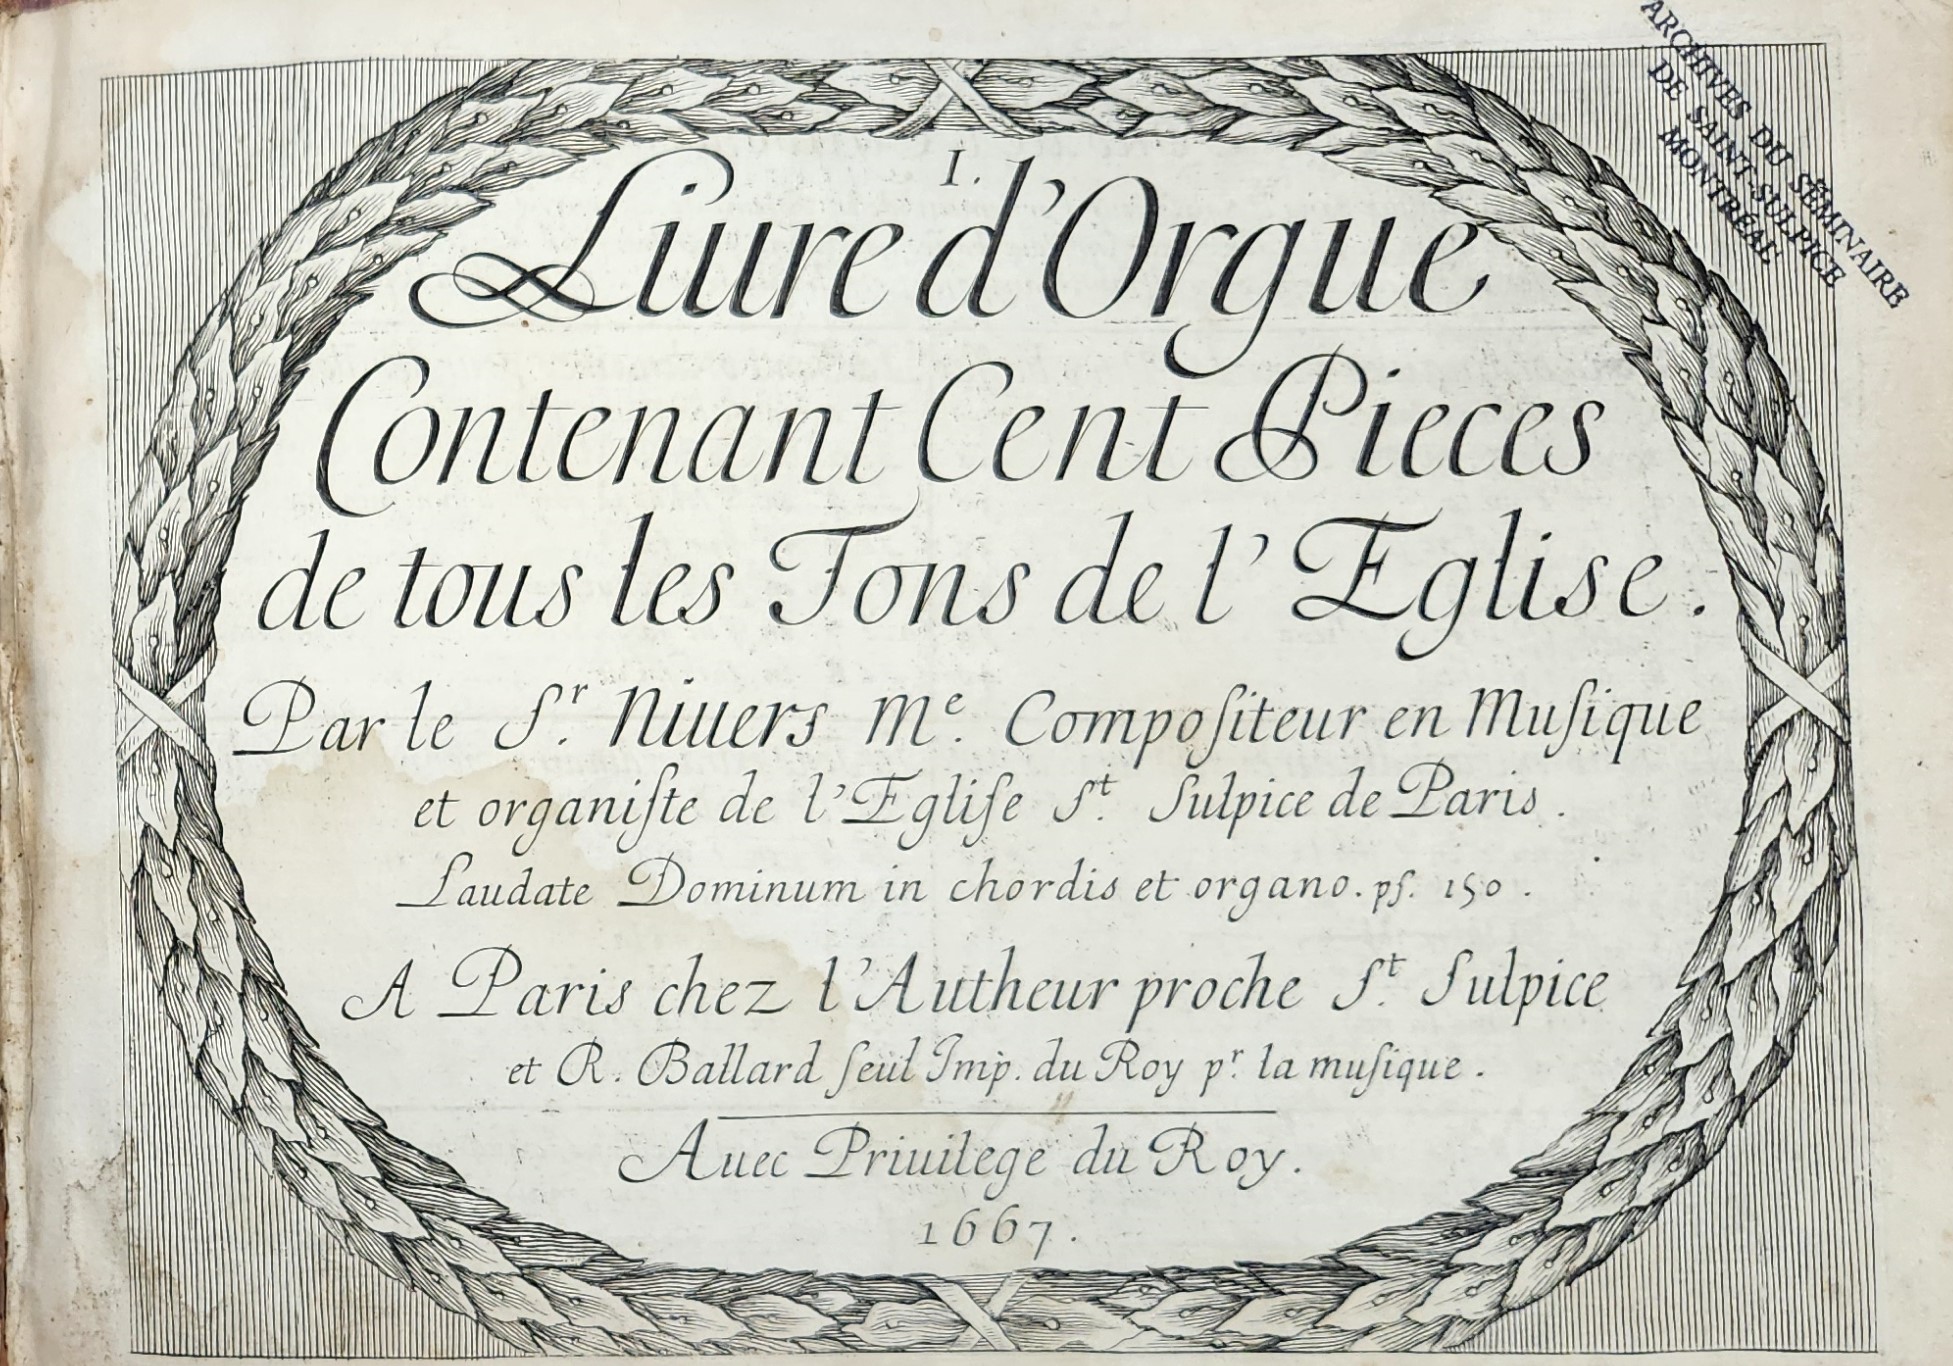 I.
Liure d'Orgue
Contenant Cent Pieces
de tous les Tons de l'Eglise.
Par le Sr. Niuers Me. Compoſiteur en Muſique
et organiſte de l'Egliſe St. Sulpice de Paris.
Laudate Dominum in chordis et organo. pſ. 150.
A Paris chez l'Autheur proche St. Sulpice
et R. Ballard ſeul Imp. du Roy pr. la muſique.
Auec Priuilege du Roy.
1667.
ARCHIVES DU SÉMINAIRE
DE SAINT-SULPICE
MONTRÉAL